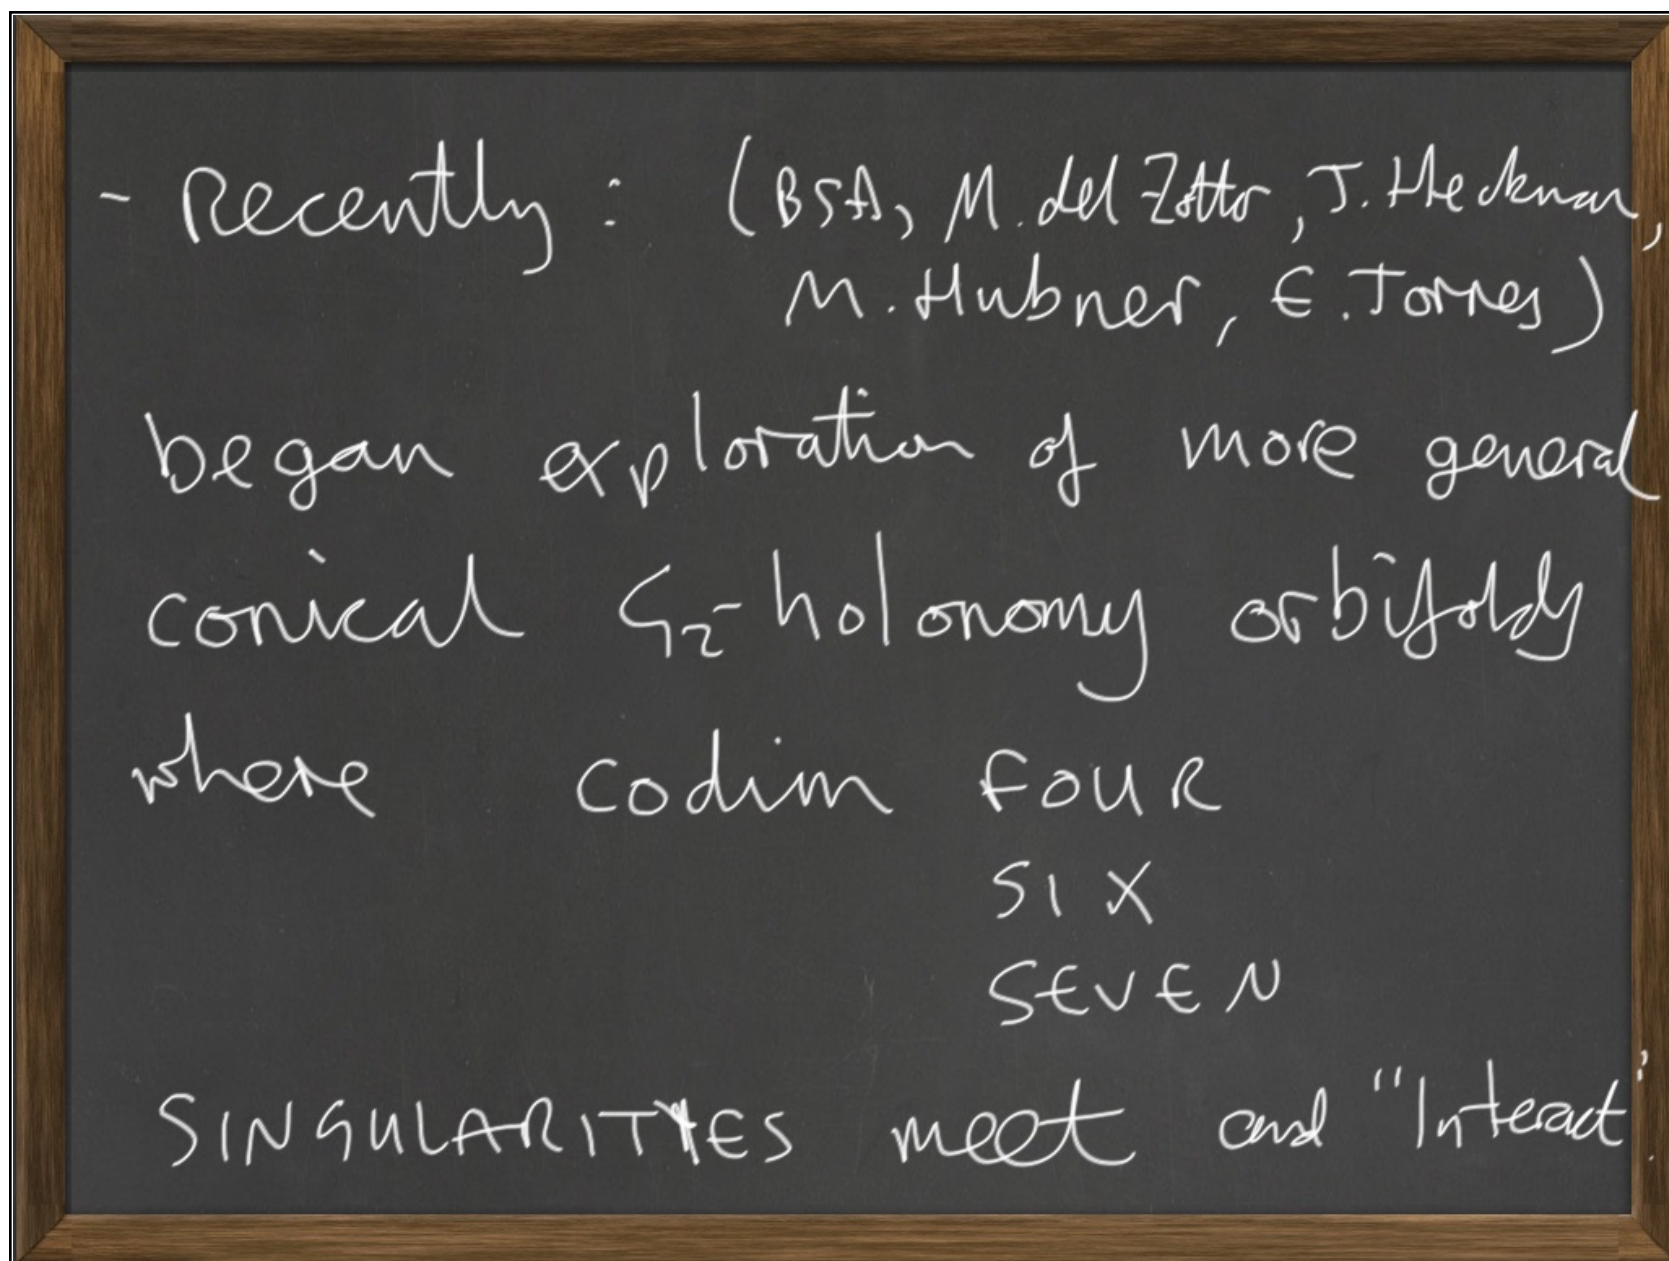 - Recently : (BSA, M. del Zotto, J. Heckman,
M. Hubner, E. Torres)
began exploration of more general
conical G₂-holonomy orbifolds
where codim FOUR
SIX
SEVEN
SINGULARITIES meet and "Interact".